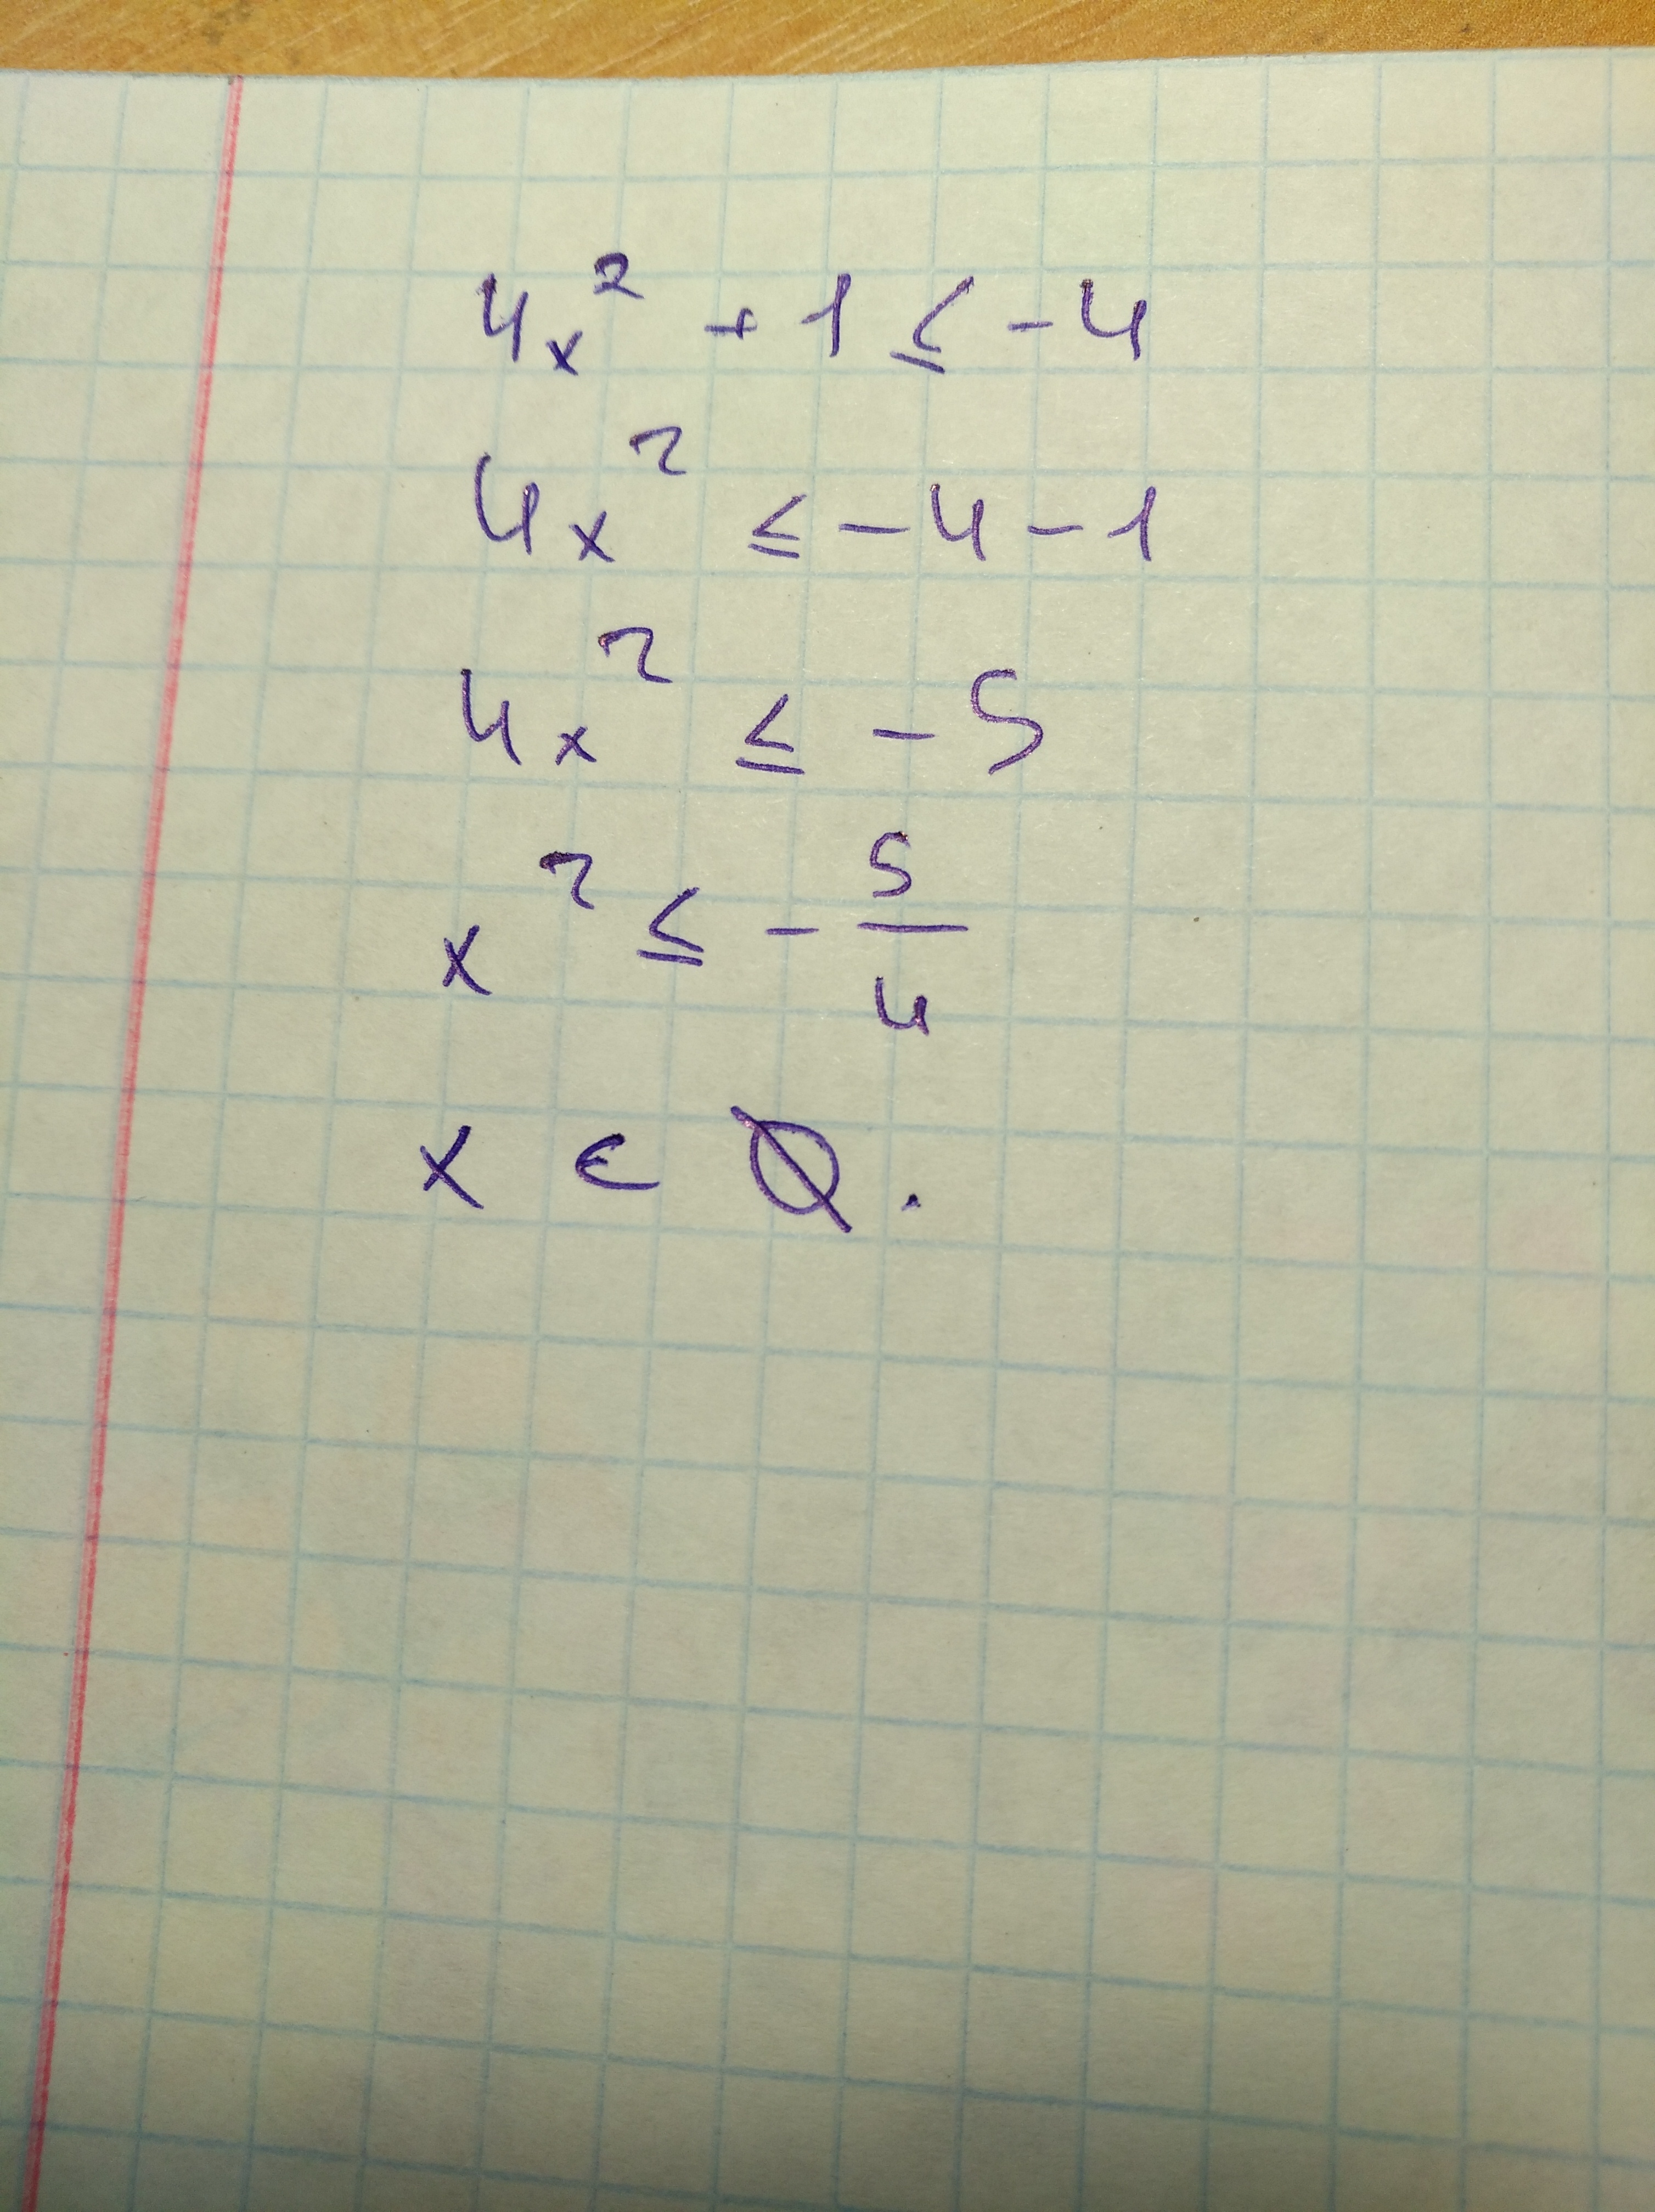 4x² + 1 ≤ -4
4x² ≤ -4 - 1
4x² ≤ -5
x² ≤ - 5/4
x ∈ ∅.